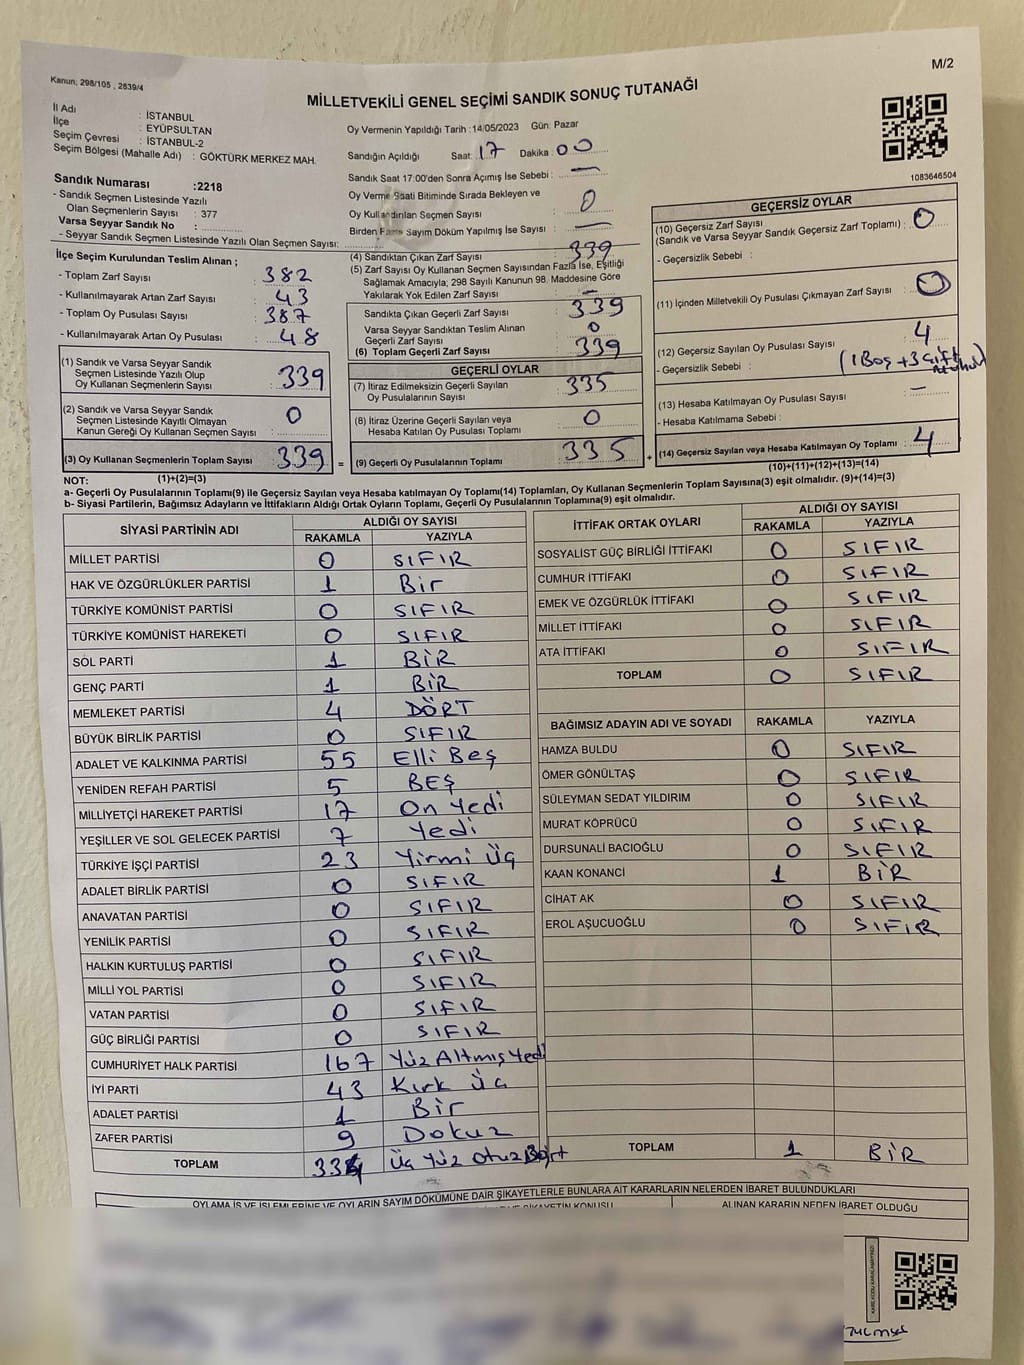 Kanun, 298/105 , 2839/4
M/2
MİLLETVEKİLİ GENEL SEÇİMİ SANDIK SONUÇ TUTANAĞI
İl Adı : İSTANBUL
İlçe : EYÜPSULTAN
Seçim Çevresi : İSTANBUL-2
Seçim Bölgesi (Mahalle Adı) : GÖKTÜRK MERKEZ MAH.
Oy Vermenin Yapıldığı Tarih :14/05/2023 Gün: Pazar
Sandığın Açıldığı Saat: 17 Dakika: 00
Sandık Saat 17.00'den Sonra Açımış İse Sebebi : —
Oy Verme Saati Bitiminde Sırada Bekleyen ve
Oy Kullandırılan Seçmen Sayısı : 0
Birden Fazla Sayım Döküm Yapılmış İse Sayısı : —
1083646504
Sandık Numarası :2218
- Sandık Seçmen Listesinde Yazılı
Olan Seçmenlerin Sayısı : 377
Varsa Seyyar Sandık No :
- Seyyar Sandık Seçmen Listesinde Yazılı Olan Seçmen Sayısı:
İlçe Seçim Kurulundan Teslim Alınan ;
- Toplam Zarf Sayısı : 382
- Kullanılmayarak Artan Zarf Sayısı : 43
- Toplam Oy Pusulası Sayısı : 387
- Kullanılmayarak Artan Oy Pusulası : 48
(1) Sandık ve Varsa Seyyar Sandık
Seçmen Listesinde Yazılı Olup
Oy Kullanan Seçmenlerin Sayısı : 339
(2) Sandık ve Varsa Seyyar Sandık
Seçmen Listesinde Kayıtlı Olmayan
Kanun Gereği Oy Kullanan Seçmen Sayısı : 0
(3) Oy Kullanan Seçmenlerin Toplam Sayısı : 339 =
(1)+(2)=(3)
(4) Sandıktan Çıkan Zarf Sayısı : 339
(5) Zarf Sayısı Oy Kullanan Seçmen Sayısından Fazla İse, Eşitliği
Sağlamak Amacıyla; 298 Sayılı Kanunun 98. Maddesine Göre
Yakılarak Yok Edilen Zarf Sayısı : —
Sandıkta Çıkan Geçerli Zarf Sayısı : 339
Varsa Seyyar Sandıktan Teslim Alınan
Geçerli Zarf Sayısı : 0
(6) Toplam Geçerli Zarf Sayısı : 339
GEÇERLİ OYLAR
(7) İtiraz Edilmeksizin Geçerli Sayılan
Oy Pusulalarının Sayısı : 335
(8) İtiraz Üzerine Geçerli Sayılan veya
Hesaba Katılan Oy Pusulası Toplamı : 0
(9) Geçerli Oy Pusulalarının Toplamı : 335 +
GEÇERSİZ OYLAR
(10) Geçersiz Zarf Sayısı
(Sandık ve Varsa Seyyar Sandık Geçersiz Zarf Toplamı) : 0
- Geçersizlik Sebebi :
(11) İçinden Milletvekili Oy Pusulası Çıkmayan Zarf Sayısı : 0
(12) Geçersiz Sayılan Oy Pusulası Sayısı : 4
- Geçersizlik Sebebi : (1 Boş + 3 Çift
(13) Hesaba Katılmayan Oy Pusulası Sayısı : —
- Hesaba Katılmama Sebebi :
(14) Geçersiz Sayılan veya Hesaba Katılmayan Oy Toplamı : 4
(10)+(11)+(12)+(13)=(14)
NOT:
a- Geçerli Oy Pusulalarının Toplamı(9) ile Geçersiz Sayılan veya Hesaba katılmayan Oy Toplamı(14) Toplamları, Oy Kullanan Seçmenlerin Toplam Sayısına(3) eşit olmalıdır. (9)+(14)=(3)
b- Siyasi Partilerin, Bağımsız Adayların ve İttifakların Aldığı Ortak Oyların Toplamı, Geçerli Oy Pusulalarının Toplamına(9) eşit olmalıdır.
SİYASİ PARTİNİN ADI ALDIĞI OY SAYISI
RAKAMLA YAZIYLA
MİLLET PARTİSİ 0 SIFIR
HAK VE ÖZGÜRLÜKLER PARTİSİ 1 Bir
TÜRKİYE KOMÜNİST PARTİSİ 0 SIFIR
TÜRKİYE KOMÜNİST HAREKETİ 0 SIFIR
SOL PARTİ 1 BİR
GENÇ PARTİ 1 BİR
MEMLEKET PARTİSİ 4 DÖRT
BÜYÜK BİRLİK PARTİSİ 0 SIFIR
ADALET VE KALKINMA PARTİSİ 55 Elli Beş
YENİDEN REFAH PARTİSİ 5 BEŞ
MİLLİYETÇİ HAREKET PARTİSİ 17 On Yedi
YEŞİLLER VE SOL GELECEK PARTİSİ 7 Yedi
TÜRKİYE İŞÇİ PARTİSİ 23 Yirmi Üç
ADALET BİRLİK PARTİSİ 0 SIFIR
ANAVATAN PARTİSİ 0 SIFIR
YENİLİK PARTİSİ 0 SIFIR
HALKIN KURTULUŞ PARTİSİ 0 SIFIR
MİLLİ YOL PARTİSİ 0 SIFIR
VATAN PARTİSİ 0 SIFIR
GÜÇ BİRLİĞİ PARTİSİ 0 SIFIR
CUMHURİYET HALK PARTİSİ 167 Yüz Altmış Yedi
İYİ PARTİ 43 Kırk Üç
ADALET PARTİSİ 1 Bir
ZAFER PARTİSİ 9 Dokuz
TOPLAM 334 Üç Yüz Otuz Dört
İTTİFAK ORTAK OYLARI ALDIĞI OY SAYISI
RAKAMLA YAZIYLA
SOSYALİST GÜÇ BİRLİĞİ İTTİFAKI 0 SIFIR
CUMHUR İTTİFAKI 0 SIFIR
EMEK VE ÖZGÜRLÜK İTTİFAKI 0 SIFIR
MİLLET İTTİFAKI 0 SIFIR
ATA İTTİFAKI 0 SIFIR
TOPLAM 0 SIFIR
BAĞIMSIZ ADAYIN ADI VE SOYADI RAKAMLA YAZIYLA
HAMZA BULDU 0 SIFIR
ÖMER GÖNÜLTAŞ 0 SIFIR
SÜLEYMAN SEDAT YILDIRIM 0 SIFIR
MURAT KÖPRÜCÜ 0 SIFIR
DURSUNALİ BACIOĞLU 0 SIFIR
KAAN KONANCİ 1 BİR
CİHAT AK 0 SIFIR
EROL AŞUCUOĞLU 0 SIFIR
TOPLAM 1 BİR
OYLAMA İŞ VE İŞLEMLERİNE VE OYLARIN SAYIM DÖKÜMÜNE DAİR ŞİKAYETLERLE BUNLARA AİT KARARLARIN NELERDEN İBARET BULUNDUKLARI
ŞİKAYETİN KONUSU ALINAN KARARIN NEDEN İBARET OLDUĞU